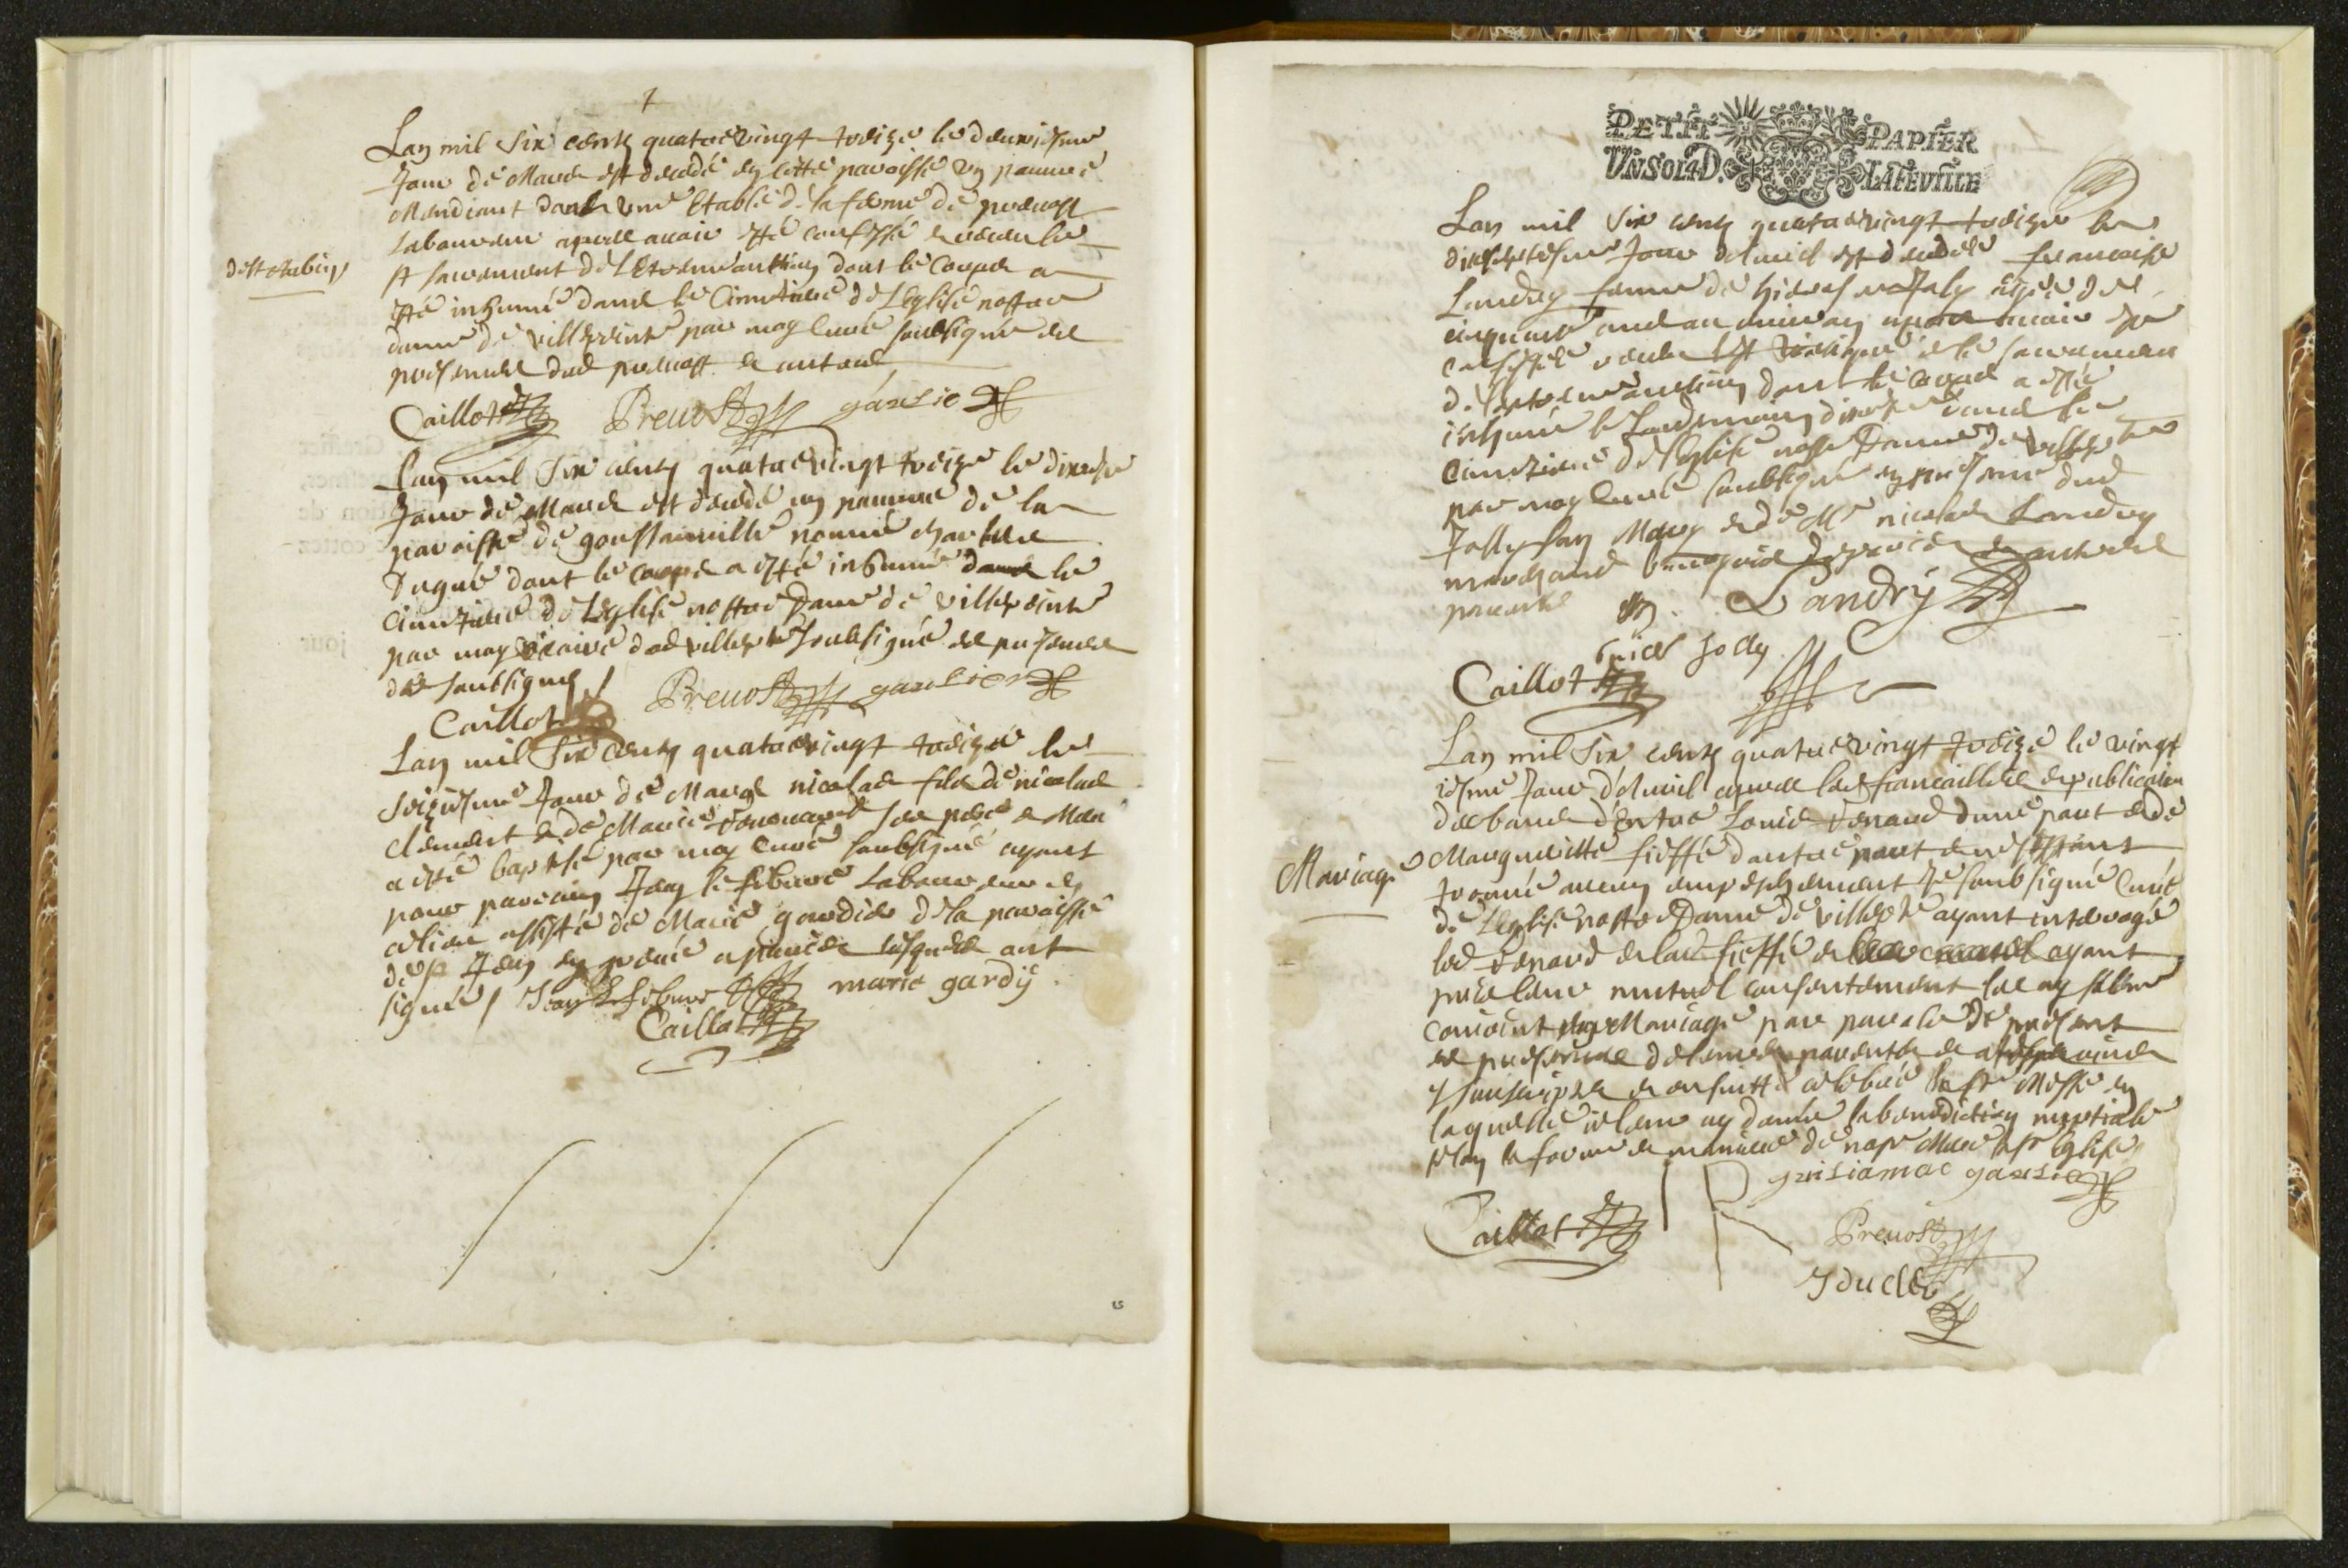 Lan mil six cents quatrevingt treize le deuxiesme
Jour de Mars est decedé en cette paroisse un pauvre
Mendiant dans une Etable de la ferme de prevost
Laboureur apres avoir esté confessé et receu le
St sacrement de l'Extremonction dont le corps a
esté inhumé dans le Cimetiere de L'Eglise nostre
dame de Villepinte par moy curé soubsigné en
presence dud prevost et autres
Caillot Prevost garsie
Lan mil six cents quatrevingt treize le
Jour de Mars est decedé un pauvre de la
paroisse de goussainville nommé charles
Dugué dont le corps a esté inhumé dans le
Cimetiere de L'Eglise nostre Dame de Villepinte
par moy vicaire dud villepte soubsigné en presence
des soubsignes
Caillot Prevost garsier
Lan mil six cents quatrevingt treize le
seiziesme Jour de Mars nicolas fils de nicolas
Clement et de Marie ses pere et Mere
a esté baptisé par moy curé soubsigné ayant
pour parrain Jean le febure Laboureur en
assisté de Marie gardie de la paroisse
de St Jean en lesquels ont
signés Jean Lefebure marie gardÿ
Caillot
PETIT PAPIER
VN SOL 4 D. LA FEVILLE
Lan mil six cents quatrevingt treize le
dixseptiesme Jour d'Avril est decedée francoise
Landry femme de Joly agée de
cinquante ans ou environ apres avoir esté
confessée receu le St viatique et le sacrement
de l'extremonction dont le corps a esté
inhumé le Landemain dans le
Cimetiere de l'Eglise nostre Dame de Villepte
par moy Curé soubsigné en presence dud
Jolly son Mary et de Me nicolas Landry
marchand et autres
parents Landry
Joly
Caillot
Lan mil six cents quatrevingt treize le vingt
iesme Jour d'Avril apres les fiancailles et publication
des bancs d'Entre Louis Renard d'une part et de
Mariage Margueritte fieffé d'autre part et n'estant
trouvé aucun empeschement Je soubsigné Curé
de L'Eglise nostre Dame de Villepte ayant interrogé
led Renard et lad fieffé et ayant
pris leur mutuel consentement les ay
conioint en Mariage par parole de present
en presence de leurs parents et amis
soubscripts et ensuitte celebré la Ste Messe en
laquelle ie leur ay donné la benediction nuptiale
selon la forme et maniere de nostre Mere Ste Eglise
garsier
Caillot
Prevost
J duclos